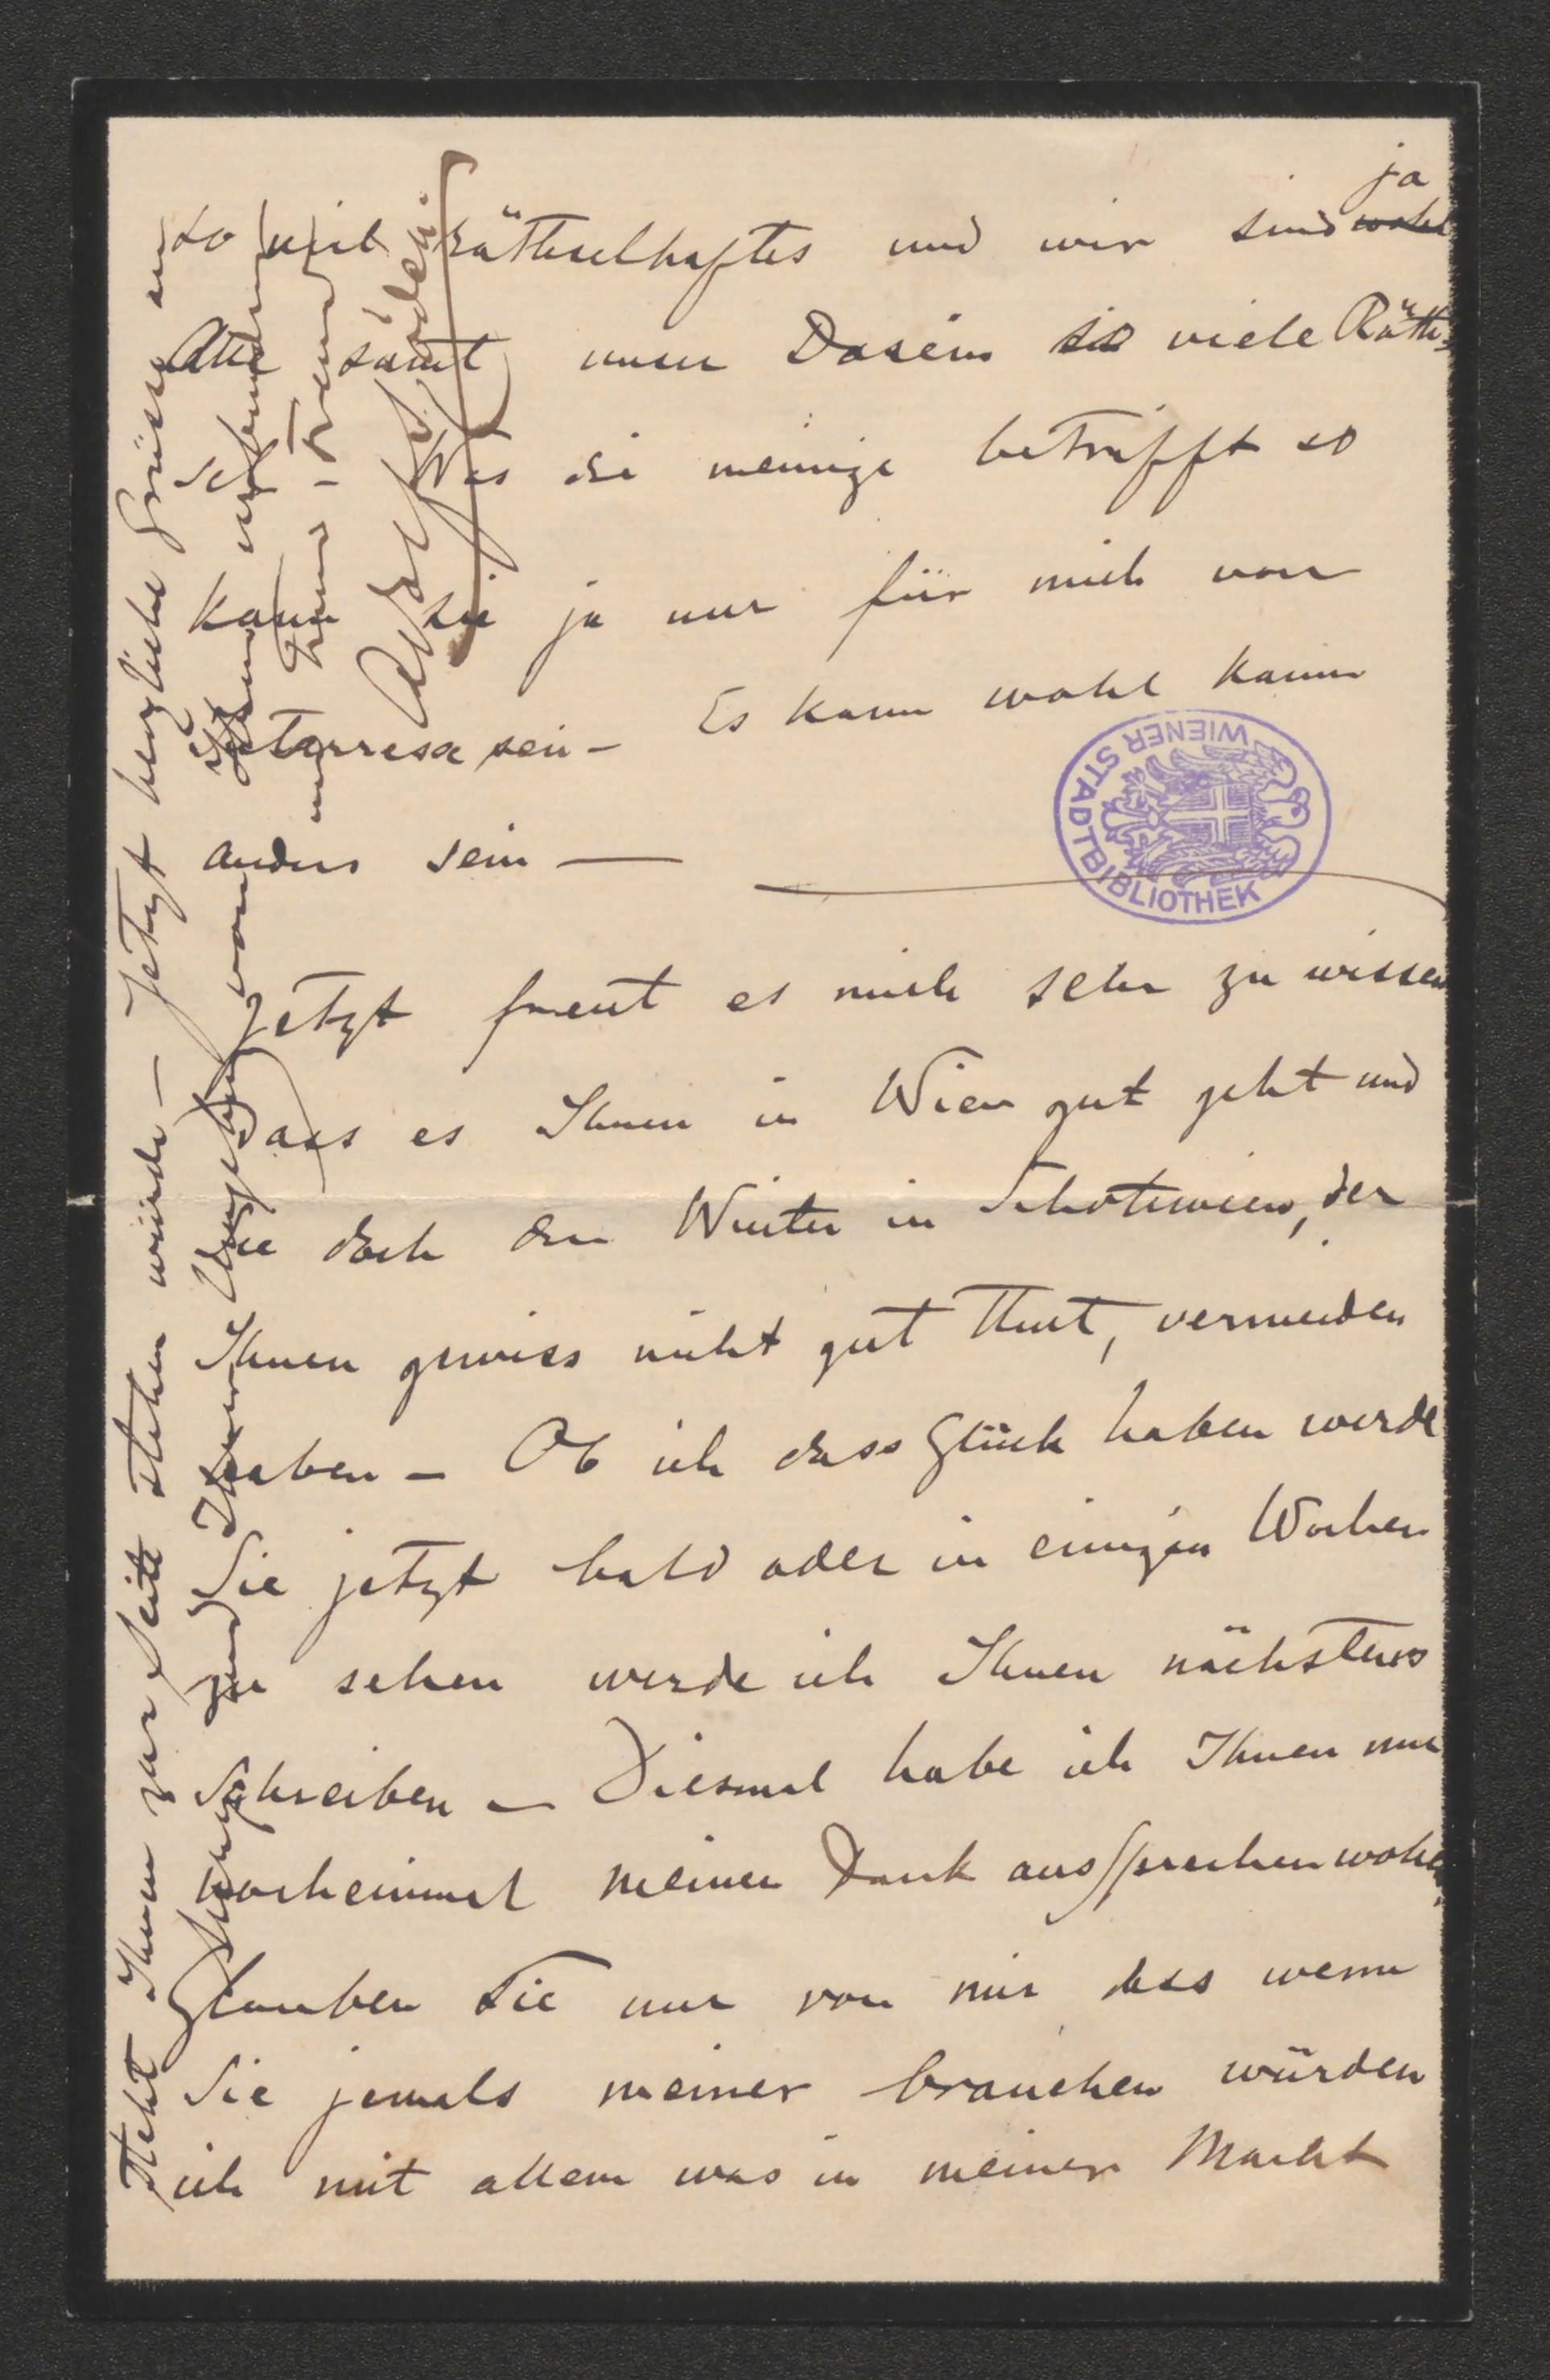 so viel Räthselhaftes und wir sind ja wohl
Alle samt unser Dasein so viele Räth-
sel - Was die meinige betrifft so
kann sie ja nur für mich von
Interresse sein - Es kann wohl kaum
anders sein —
WIENER STADTBIBLIOTHEK
Jetzt freut es mich sehr zu wissen
dass es Ihnen in Wien gut geht und
Sie doch den Winter in Schotwien, der
Ihnen gewiss nicht gut thut, vermeiden
haben - Ob ich dass Glück haben werde
Sie jetzt bald oder in einigen Wochen
zu sehen werde ich Ihnen nächstens
schreiben - Diesmal habe ich Ihnen nur
nocheinmal meinen Dank aussprechen wollen.
Glauben Sie nur von mir dass wenn
Sie jemals meiner brauchen würden
ich mit allem was in meiner Macht
steht Ihnen zur Seite stehen würde - Jetzt herzliche Grüsse an
Sie und Ihrer Umgebung von
Ihrem
und Freund